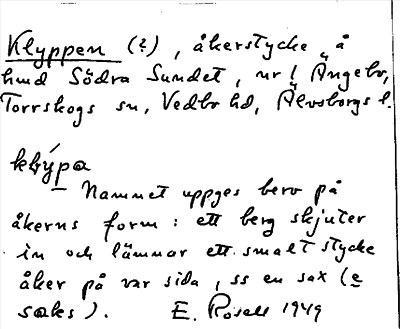 Klyppen (?), åkerstycke å
hmd Södra Sundet, nr 1 Ängebo,
Torrskogs sn, Vedbo hd, Älvsborgs l.
klýpa
— Namnet uppges bero på
åkerns form: ett berg skjuter
in och lämnar ett smalt stycke
åker på var sida, ss en sax (e
saks). E. Rosell 1949